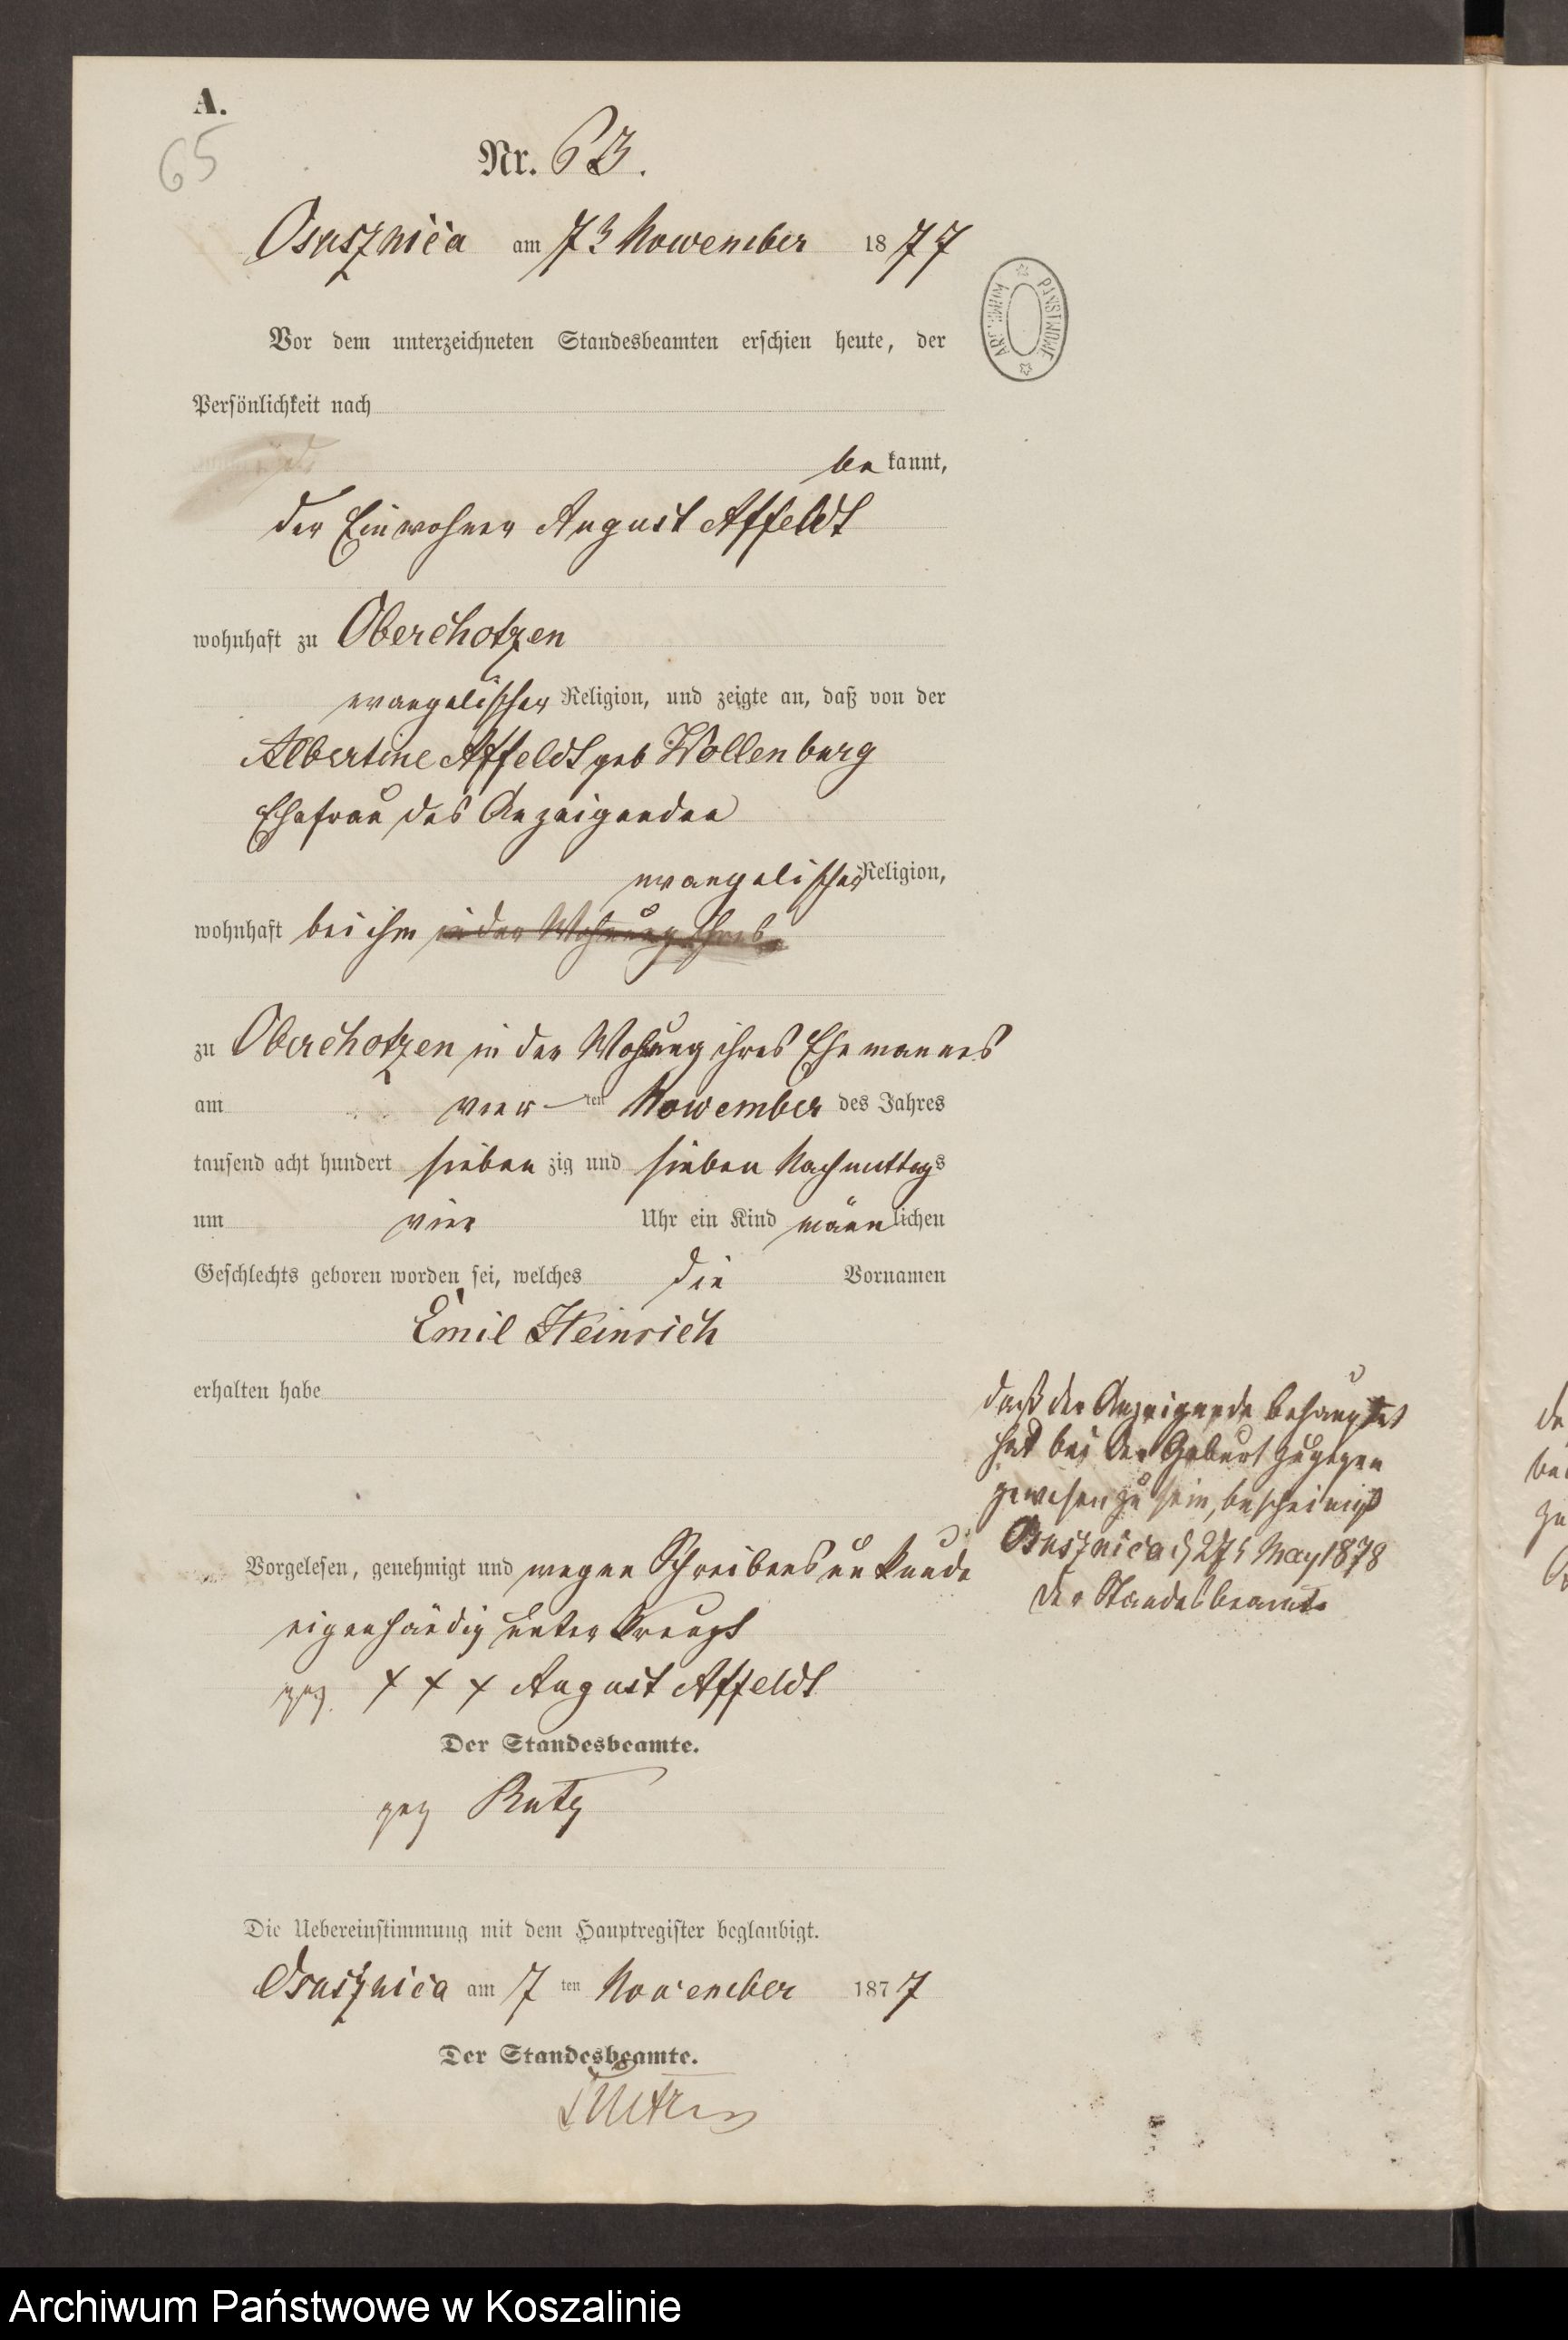 A.
65
Nr. 63.
Osusznica am 7 November 1877
Vor dem unterzeichneten Standesbeamten erschien heute, der
Persönlichkeit nach
be kannt,
der Einwohner August Affeldt
wohnhaft zu Oberchotzen
evangelischer Religion, und zeigte an, daß von der
Albertine Affeldt geb Wollenburg
Ehefrau des Anzeigenden
evangelischer Religion,
wohnhaft bei ihm in der Wohnung ihres
zu Oberchotzen in der Wohnung ihres Ehemannes
am vier ten Nowember des Jahres
tausend acht hundert sieben zig und sieben Nachmittags
um vier Uhr ein Kind männlichen
Geschlechts geboren worden sei, welches die Vornamen
Emil Heinrich
erhalten habe
Vorgelesen, genehmigt und wegen Schreibensunkunde
eigenhändig unterkreuzt
gez. + + + August Affeldt
Der Standesbeamte.
gez Rutz
Die Uebereinstimmung mit dem Hauptregister beglaubigt.
Osusznica am 7 ten November 1877
Der Standesbeamte.
daß der Anzeigende behauptet
hat bei der Geburt zugegen
gewesen zu sein, bescheinigt
Osusznica May 1878
der Standesbeamte
Archiwum Państwowe w Koszalinie